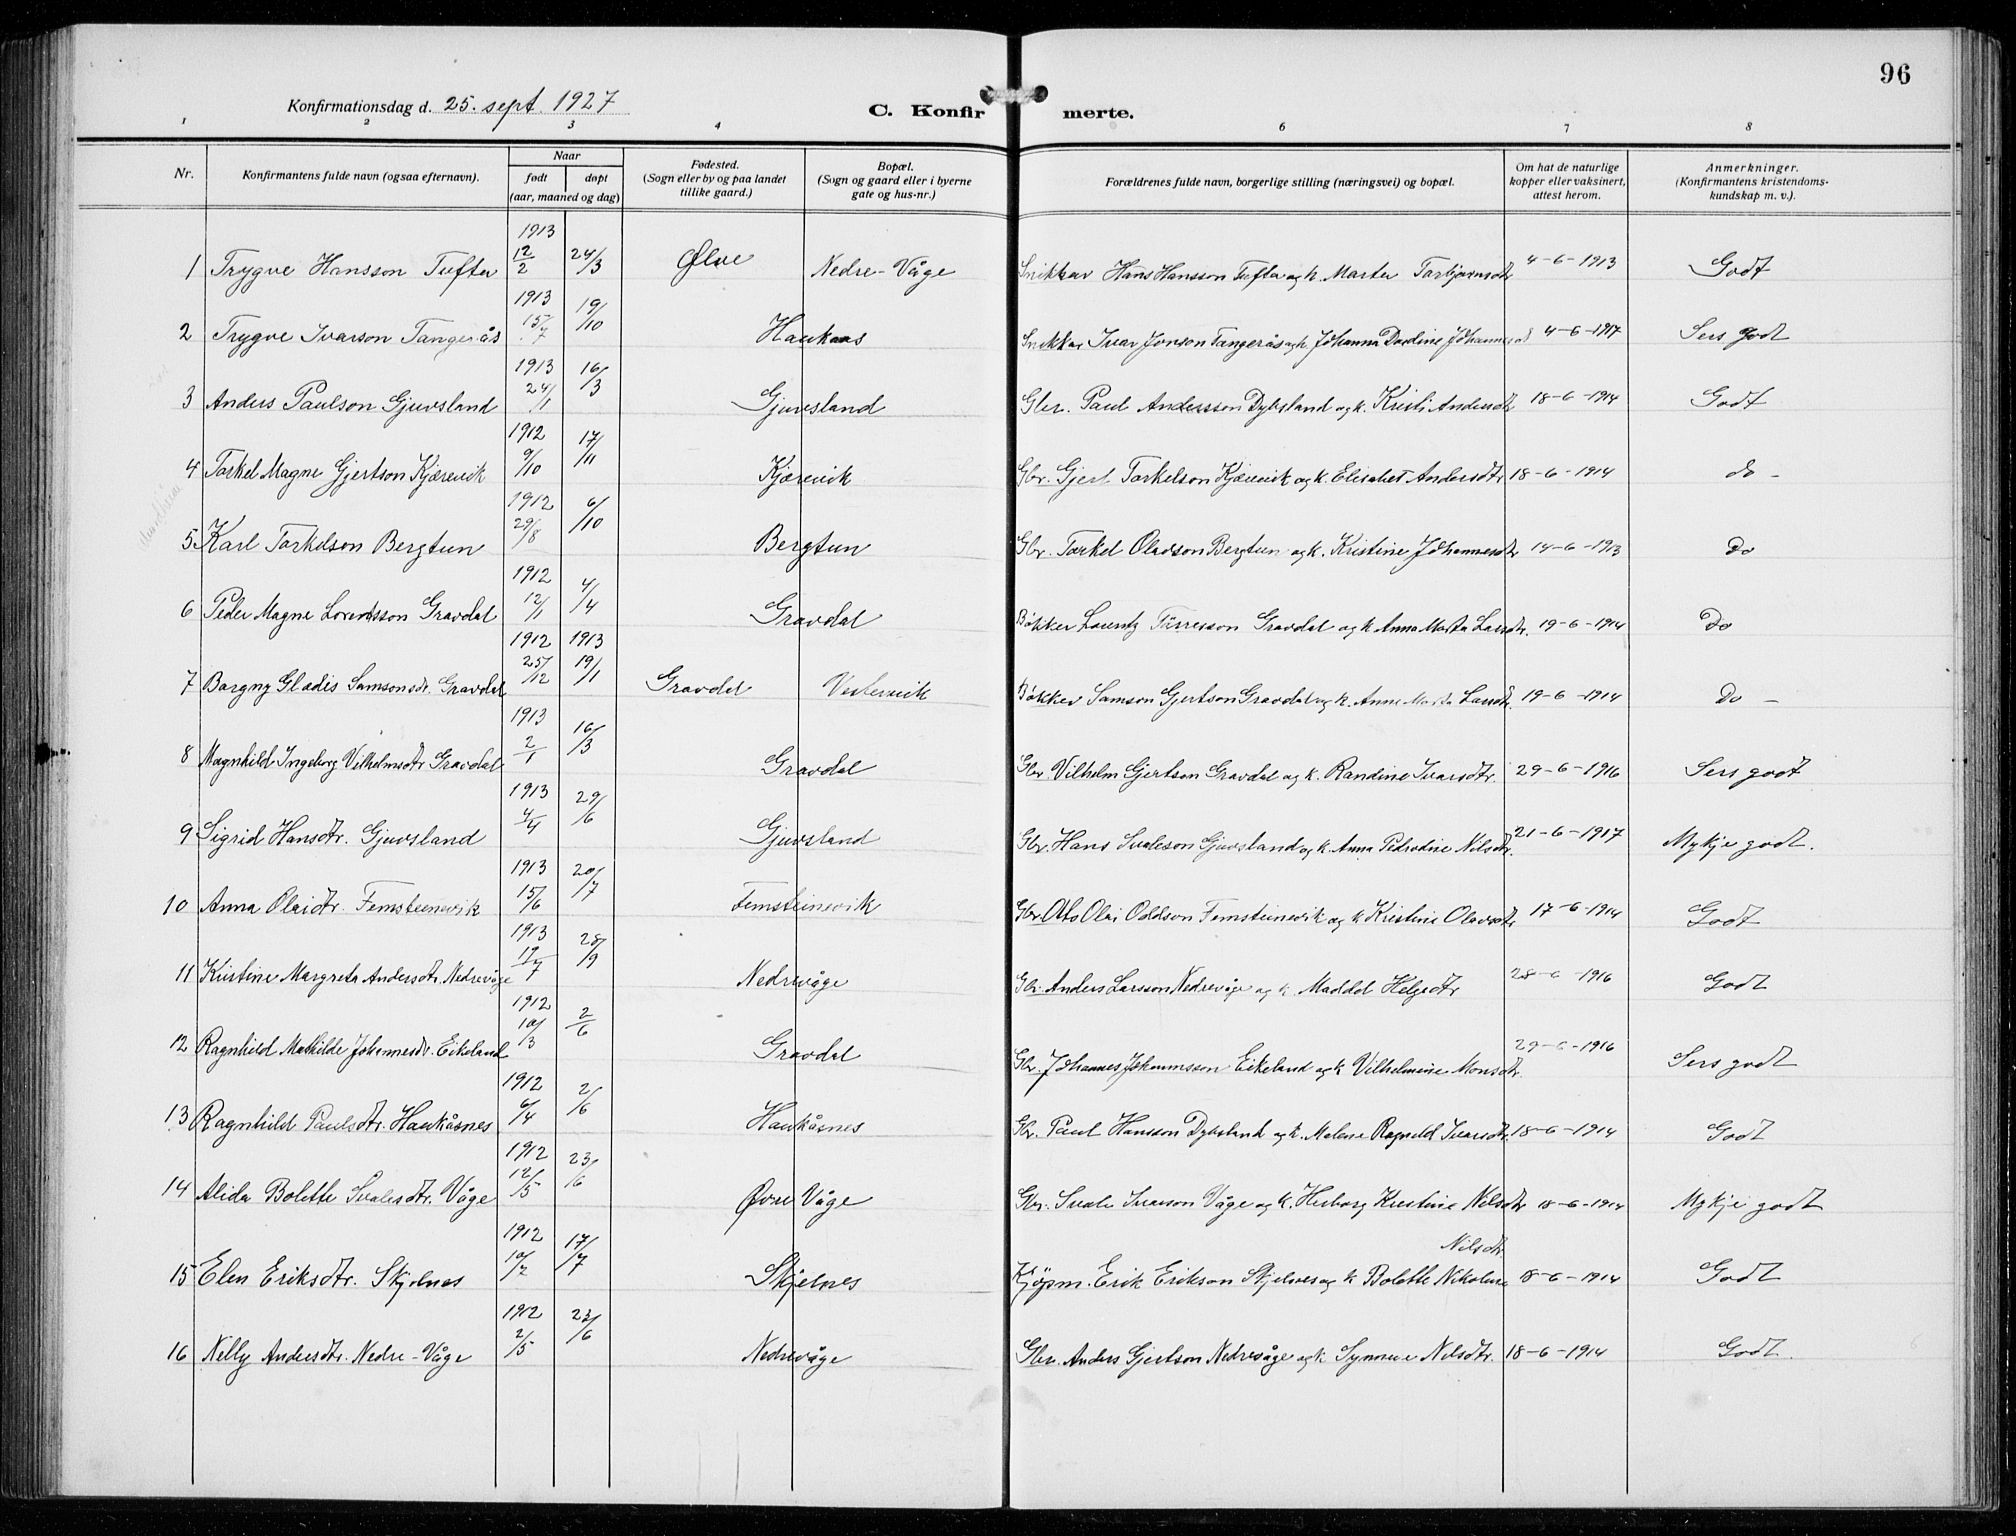 96
Konfirmationsdag d. 25. sept. 1927
C. Konfir merte.
1 2 3 4 6 7 8
Nr.
Konfirmantens fulde navn (ogsaa efternavn).
Naar
født døpt
(aar, maaned og dag)
Fødested.
(Sogn eller by og paa landet
tillike gaard.)
Bopæl.
(Sogn og gaard eller i byerne
gate og hus-nr.)
Forældrenes fulde navn, borgerlige stilling (næringsvei) og bopæl.
Om hat de naturlige
kopper eller vaksinert,
attest herom.
Anmerkninger.
(Konfirmantens kristendoms-
kundskap m. v.).
1 Trygve Hansson Tufter 1913 12/2 24/3 Ølve Nedre-Våge Snikkar Hans Hansson Tufta og k. Marta Torbjørnsdtr 4-6-1913 Godt
2 Trygve Ivarson Tangerås 1913 15/7 19/10 Haukaas Snikkar Ivar Jonson Tangerås og k. Johanna 4-6-1917 Sers godt
3 Anders Paulson Gjuvsland 1913 24/1 16/3 Gjuvsland Gbr. Paul Andersson Dybsland og k. Kristi Andersdtr 18-6-1914 Godt
4 Torkel Magne Gjertson Kjærevik 1912 9/10 17/11 Kjærevik Gbr. Gjert Torkelson Kjærevik og k. Elisabet Andersdtr 18-6-1914 do -
5 Karl Torkelson Bergtun 1912 29/8 6/10 Bergtun Gbr. Torkel Oladson Bergtun og k. Kristine Johannesdtr 14-6-1913 Do
6 Peder Magne Lorentsson Gravdal 1912 12/1 4/4 Gravdal Bøkker Lorentz Gravdal og k. Anna Marta Larsdtr. 19-6-1914 Do
7 Borgny Gladis Samsonsdr. Gravdal 1912 25/12 1913 19/1 Gravdal Vestervik Bøkker Samson Gjertson Gravdal og k. Anna Marta Larsdtr. 19-6-1914 Do -
8 Magnhild Ingeborg Vilhelmsdtr Gravdal 1913 2/1 16/3 Gravdal Gbr. Vilhelm Gjertson Gravdal og k. Randine Ivarsdtr. 29-6-1916 Sers godt
9 Sigrid Hansdtr. Gjuvsland 1913 4/4 29/6 Gjuvsland Gbr. Hans Svaleson Gjuvsland og k. Anna Pedrodine Nilsdtr. 21-6-1917 Mykje godt.
10 Anna Olaidtr. Femsteinevik 1913 15/6 20/7 Femsteinevik Gbr. Olai Oddson Femsteinevik og k Kristine Olavsdtr 17-6-1914 Godt
11 Kristine Margreta Andersdtr. Nedrevåge 1913 19/7 28/9 Nedrevåge Gbr. Anders Larsson Nedrevåge og k. Maddel Helgedtr 28-6-1916 Godt
12 Ragnhild Mathilde Johannesdr. Eikeland 1912 10/3 2/6 Gravdal Gbr. Johannes Johannesson Eikeland og k Vilhelmine Monsdtr. 29-6-1916 Sers godt
13 Ragnhild Paulsdtr. Haukåsnes 1912 6/4 2/6 Haukåsnes Gbr. Paul Hansson Dybsland og k. Malene Ragnild Ivarsdtr. 18-6-1914 Godt
14 Alida Bolette Svalesdtr. Våge 1912 12/5 23/6 Øvre Våge Gbr. Svale Ivarson Våge og k. Herborg Kristine Nilsdtr 18-6-1914 Mykje godt
15 Elen Eriksdtr. Skjelnes 1912 10/2 17/7 Skjelnes Kjøpm. Erik Erikson Skjelnes og k Bolette Nikoline Nilsdtr. 18-6-1914 Godt
16 Nelly Andersdtr. Nedre-Våge 1912 2/5 23/6 Nedrevåge Gbr. Anders Gjertson Nedrevåge og k. Synneve Nilsdtr. 18-6-1914 Godt.